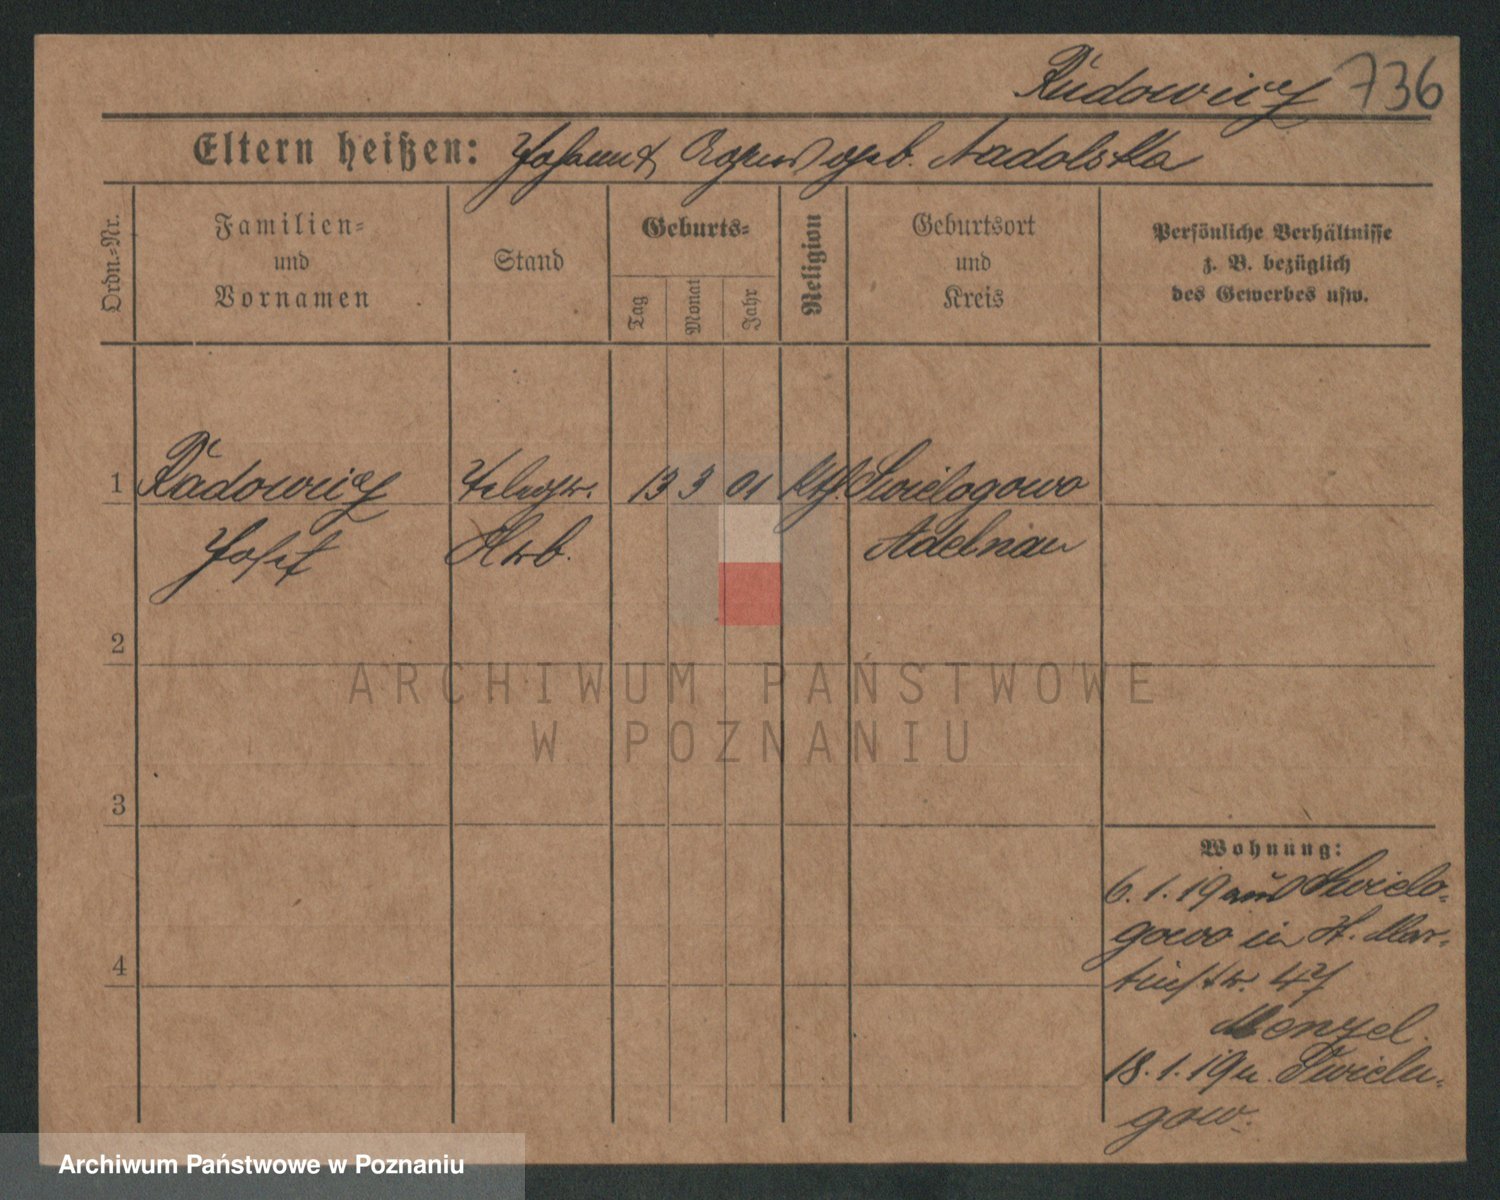 Radowicz 736
Eltern heißen: Johann & Agnes geb. Nadolska
Ordn.-Nr.
Familien-
und
Vornamen
Stand
Geburts-
Tag
Monat
Jahr
Religion
Geburtsort
und
Kreis
Persönliche Verhältnisse
z. B. bezüglich
des Gewerbes usw.
1 Radowicz 13 3 01 kth. Swielogowo
Josef Arb. Adelnau
2
3
4
Wohnung:
6. 1. 19 aus Swielo-
gowo in St. Mar-
tinstr. 47
Menzel
18. 1. 19 n. Swielu-
gow.
ARCHIWUM PAŃSTWOWE
W POZNANIU
Archiwum Państwowe w Poznaniu